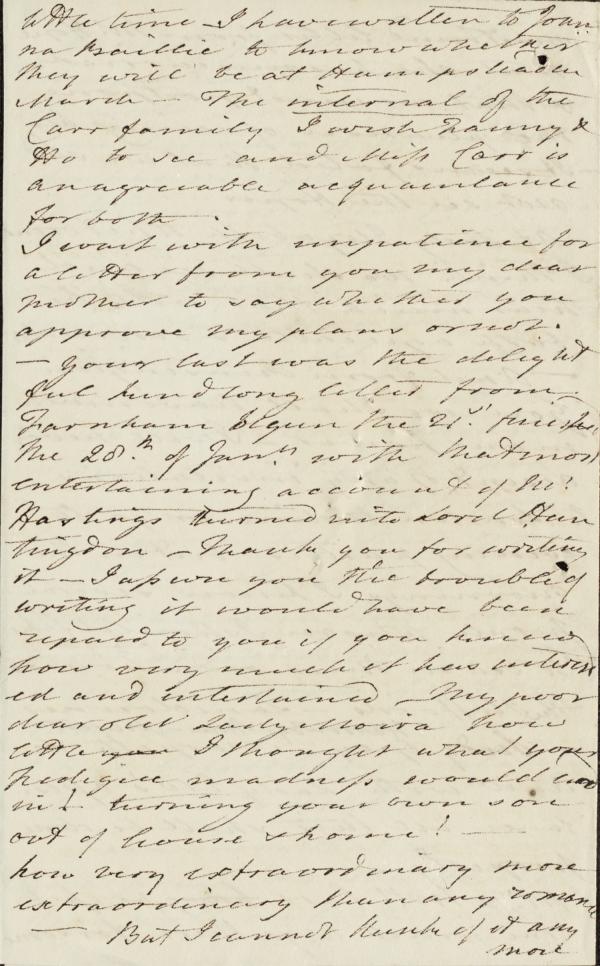 little time – I have written to Joan
na Baillie to know whether
they will be at Hampstead in
March – The internal of the
Carr family I wish Fanny &
Ho to see and Miss Carr is
an agreeable acquaintance
for both.
I wait with impatience for
a letter from you my dear
mother to say whether you
approve my plans or not.
– Your last was the delight
ful kind long letter from
Farnham begun the 21st. finished
the 28th of Jany. with that most
entertaining account of Mr
Hastings turned into Lord Hun
tingdon – Thank you for writing
it – I assure you the trouble of
writing it would have been
repaid to you if you knew
how very much it has interest
ed and entertained – My poor
dear old Lady Moira how
little you I thought what your
Pedigree madness would end
in! turning your own son
out of house & home! —
how very extraordinary more
extraordinary than any romance
— But I cannot think of it any
more